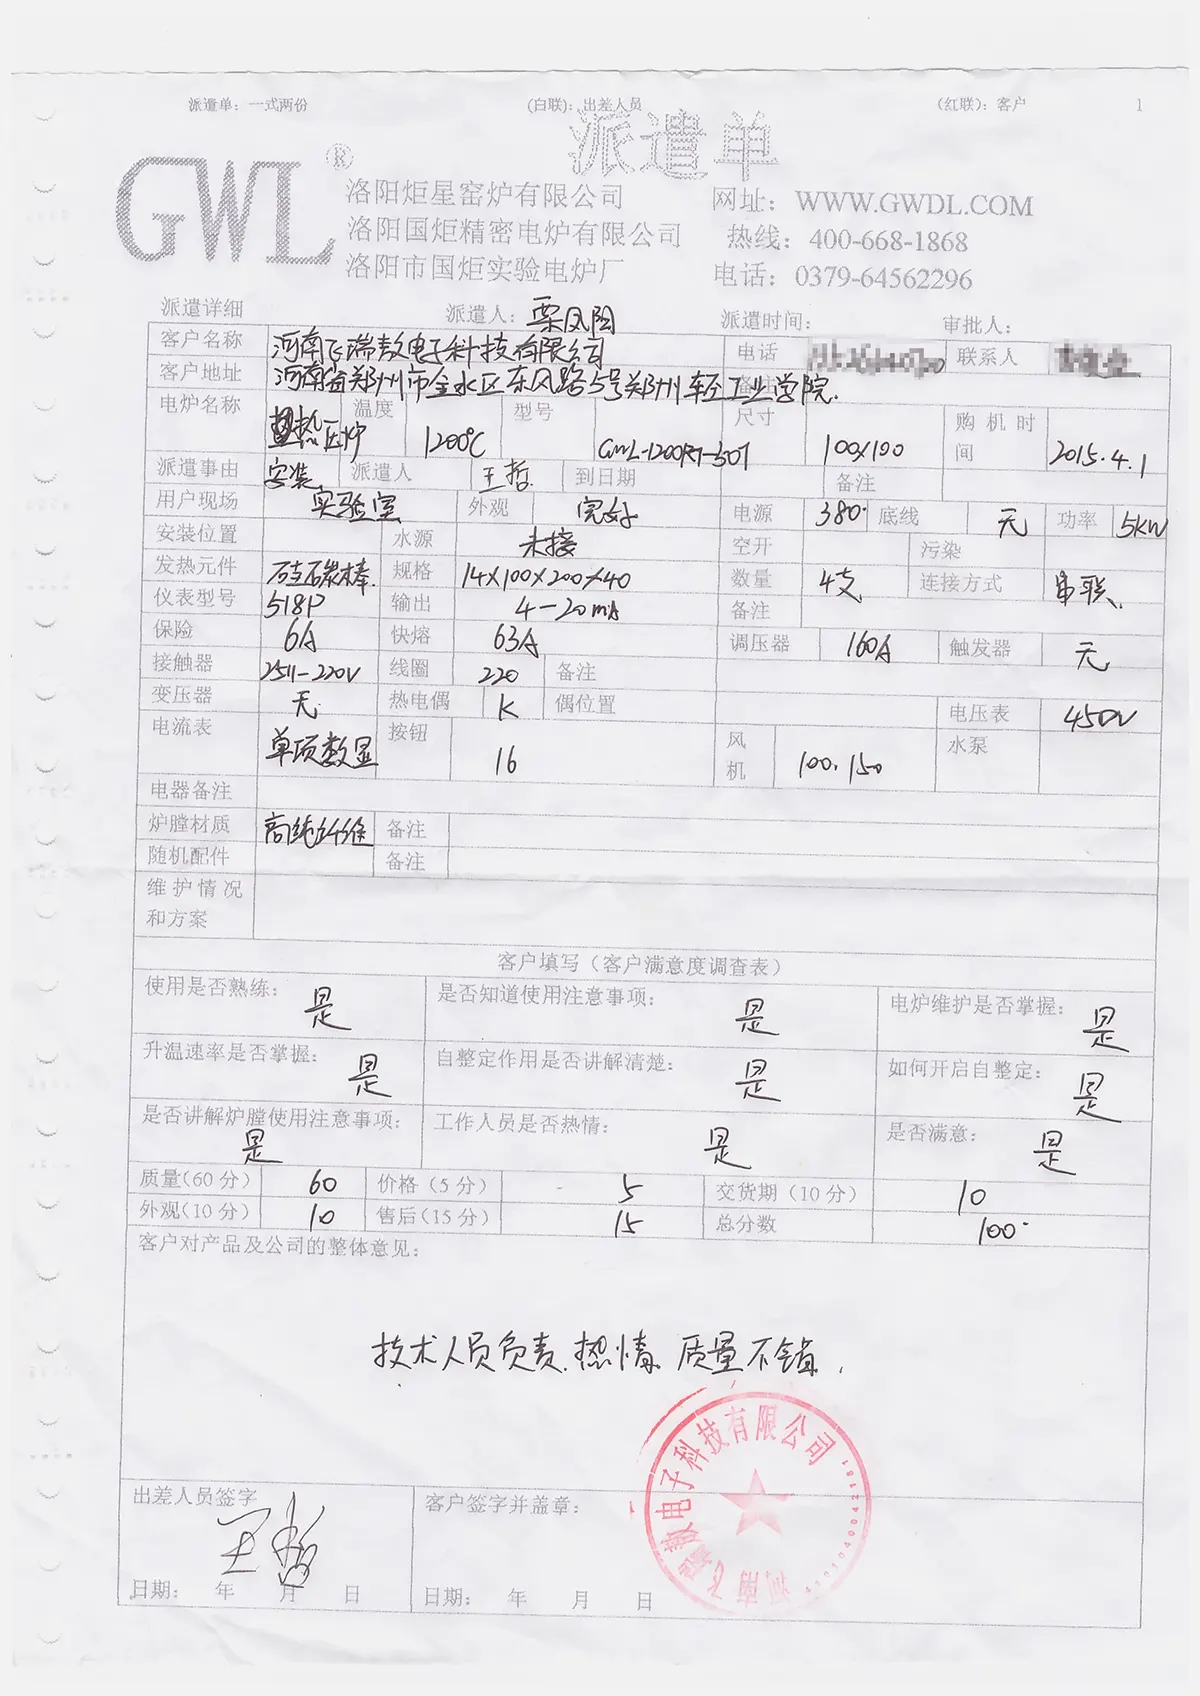 派遣单：一式两份 (白联)：出差人员 (红联)：客户 1
派遣单
GWL®
洛阳炬星窑炉有限公司 网址：WWW.GWDL.COM
洛阳国炬精密电炉有限公司 热线：400-668-1868
洛阳市国炬实验电炉厂 电话：0379-64562296
派遣详细 派遣人：栗凤阳 派遣时间： 审批人：
客户名称 河南飞瑞敖电子科技有限公司 电话 联系人
客户地址 河南省郑州市金水区东风路5号郑州轻工业学院.
电炉名称 热压炉 温度 1200℃ 型号 GWL-1200RY-50T 尺寸 100X100 购机时间 2015.4.1
派遣事由 安装 派遣人 王哲 到日期 备注
用户现场 实验室 外观 完好 电源 380 底线 无 功率 5KW
安装位置 水源 未接 空开 污染
发热元件 硅碳棒. 规格 14X100X200X40 数量 4支 连接方式 串联
仪表型号 518P 输出 4-20mA 备注
保险 6A 快熔 63A 调压器 160A 触发器 无
接触器 2511-220V 线圈 220 备注
变压器 无 热电偶 K 偶位置 电压表 450V
电流表 单项数显 按钮 16 风机 100.150 水泵
电器备注
炉膛材质 高纯纤维 备注
随机配件 备注
维护情况和方案
客户填写（客户满意度调查表）
使用是否熟练： 是 是否知道使用注意事项： 是 电炉维护是否掌握： 是
升温速率是否掌握： 是 自整定作用是否讲解清楚： 是 如何开启自整定： 是
是否讲解炉膛使用注意事项： 是 工作人员是否热情： 是 是否满意： 是
质量(60分) 60 价格（5分） 5 交货期（10分） 10
外观(10分) 10 售后(15分) 15 总分数 100
客户对产品及公司的整体意见：
技术人员负责.热情.质量不错.
出差人员签字 王哲 客户签字并盖章：
河南飞瑞敖电子科技有限公司
日期： 年 月 日 日期： 年 月 日